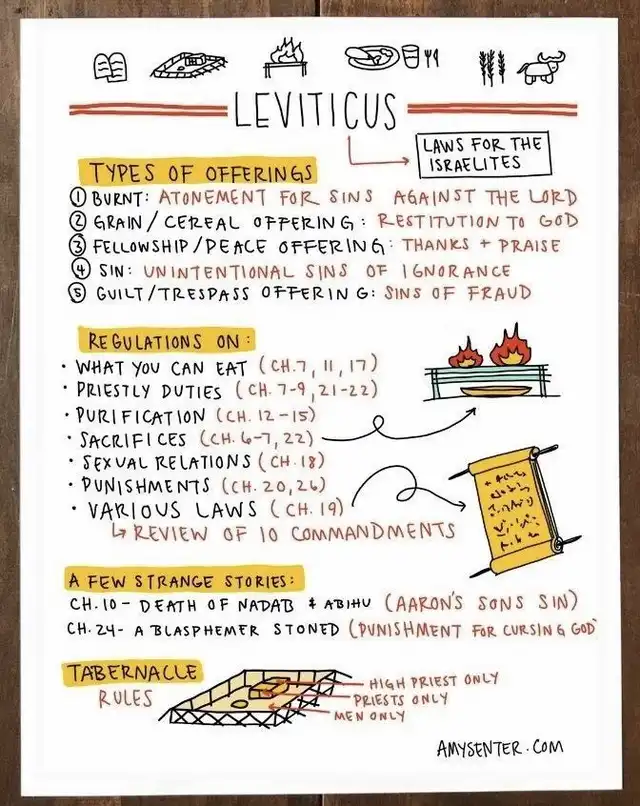 LEVITICUS
LAWS FOR THE
ISRAELITES
TYPES OF OFFERINGS
① BURNT: ATONEMENT FOR SINS AGAINST THE LORD
② GRAIN/CEREAL OFFERING: RESTITUTION TO GOD
③ FELLOWSHIP/PEACE OFFERING: THANKS + PRAISE
④ SIN: UNINTENTIONAL SINS OF IGNORANCE
⑤ GUILT/TRESPASS OFFERING: SINS OF FRAUD
REGULATIONS ON:
· WHAT YOU CAN EAT (CH.7, 11, 17)
· PRIESTLY DUTIES (CH. 7-9, 21-22)
· PURIFICATION (CH. 12-15)
· SACRIFICES (CH. 6-7, 22)
· SEXUAL RELATIONS (CH. 18)
· PUNISHMENTS (CH. 20, 26)
· VARIOUS LAWS (CH. 19)
↳ REVIEW OF 10 COMMANDMENTS
A FEW STRANGE STORIES:
CH. 10- DEATH OF NADAB & ABIHU (AARON'S SONS SIN)
CH. 24- A BLASPHEMER STONED (PUNISHMENT FOR CURSING GOD
TABERNACLE
RULES
HIGH PRIEST ONLY
PRIESTS ONLY
MEN ONLY
AMYSENTER.COM